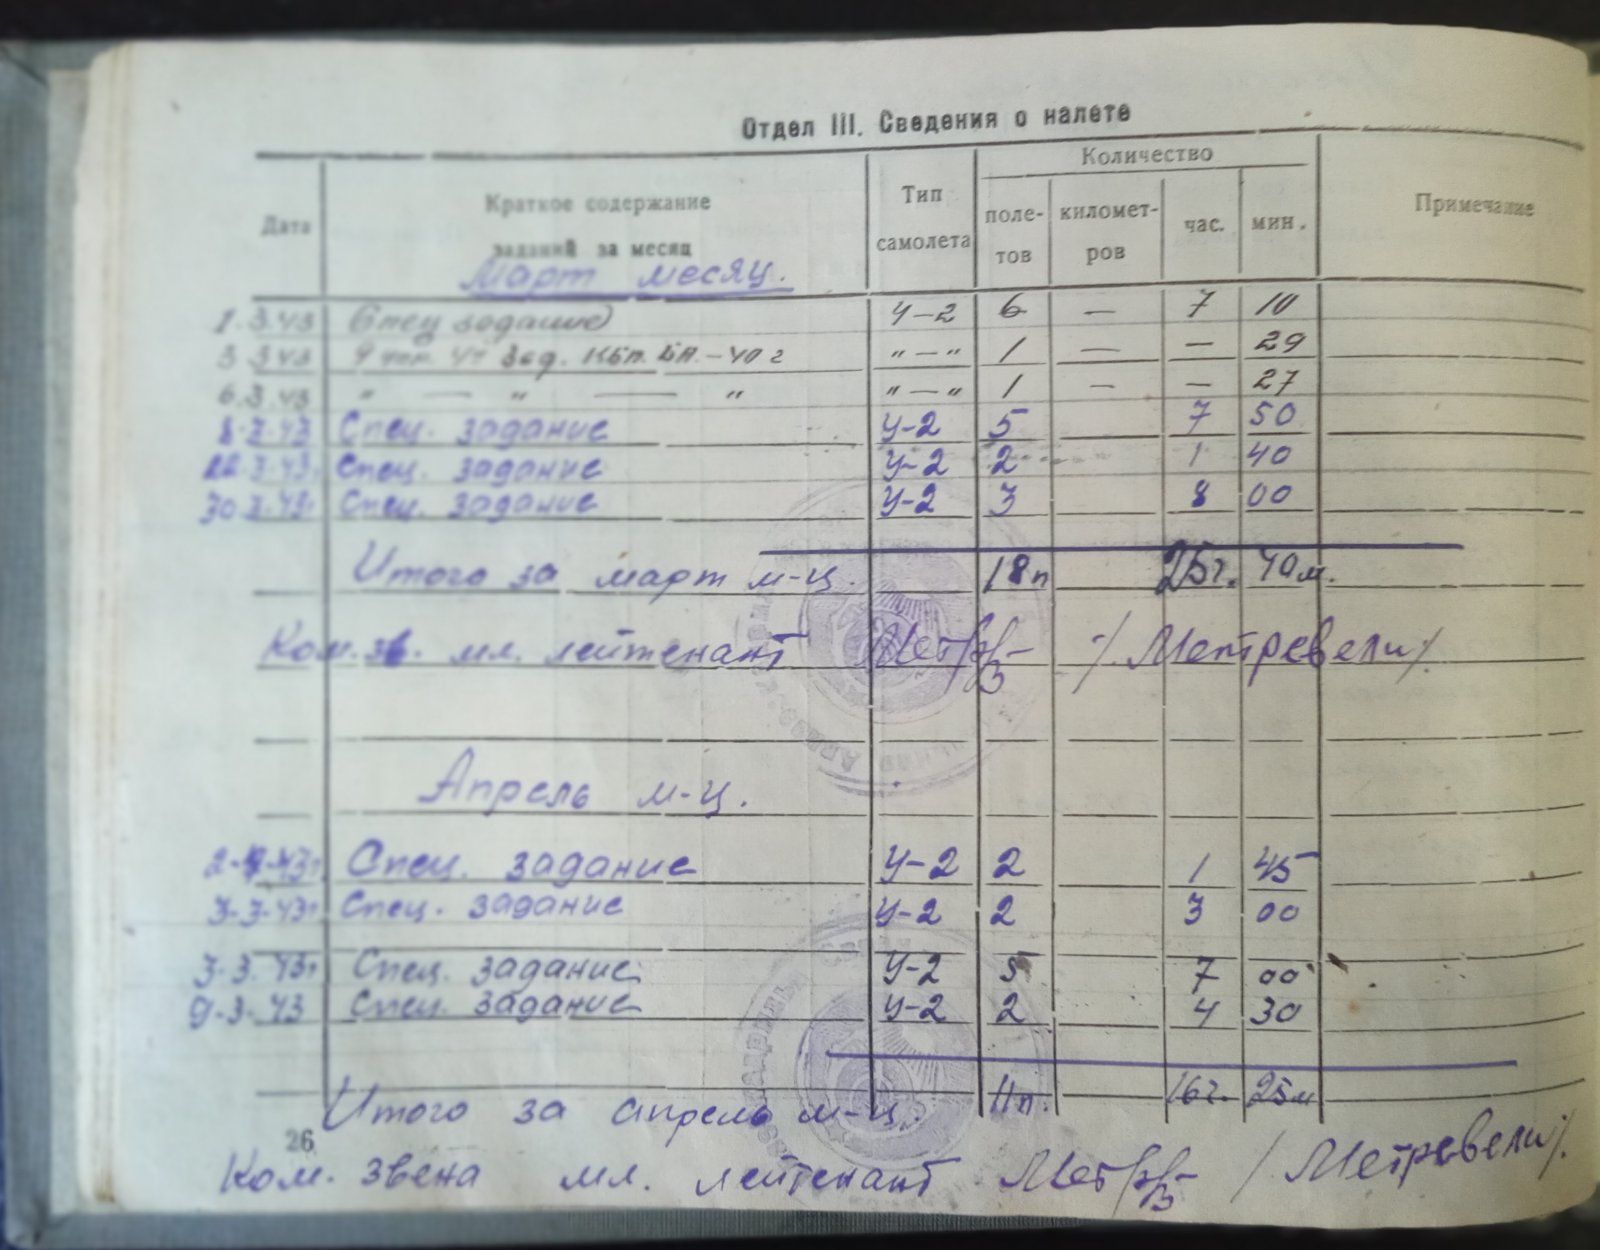 Отдел III. Сведения о налете
Дата Краткое содержание заданий за месяц Тип самолета Количество Примечание
поле-тов километ-ров час. мин.
Март месяц.
1.3.43 Спец задание У-2 6 — 7 10
3.3.43 зад. КБП. БА.-40 г „ — „ 1 — — 29
6.3.43 „ — „ — „ „ — „ 1 — — 27
8.3.43 Спец. задание У-2 5 7 50
22.3.43г Спец. задание У-2 2 1 40
30.3.43г Спец. задание У-2 3 8 00
Итого за март м-ц. 18п 25ч. 40м.
Ком.зв. мл. лейтенант /Метревели/.
Апрель м-ц.
2-4-43г Спец. задание У-2 2 1 45
3-3-43г Спец. задание У-2 2 3 00
3-3.43г Спец. задание У-2 5 7 00
9-3-43 Спец. задание У-2 2 4 30
Итого за апрель м-ц. 11п. 16ч. 25м
26
Ком. звена мл. лейтенант /Метревели/.